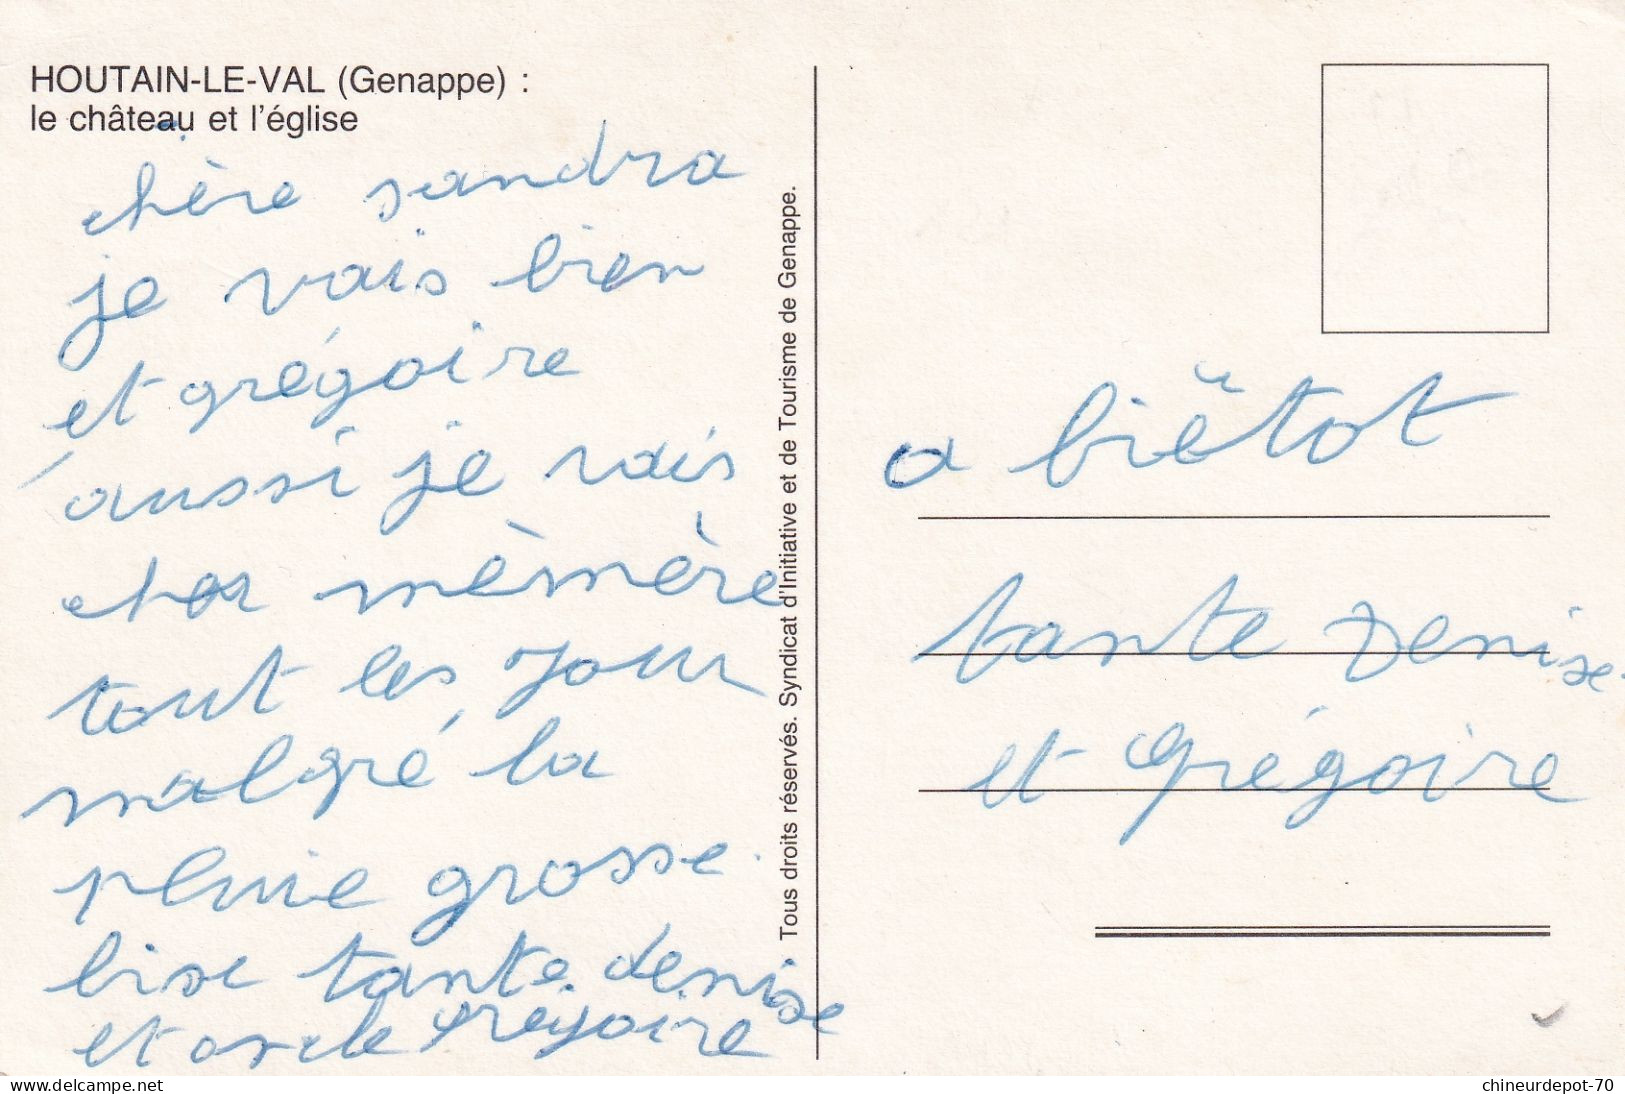 HOUTAIN-LE-VAL (Genappe) :
le château et l'église
chère sandra
je vais bien
et grégoire
aussi je vais
cher mèmère
tout les jour
malgré la
pluie grosse
bise tante denise
et oncle grégoire
Tous droits réservés. Syndicat d'Initiative et de Tourisme de Genappe.
a biêtot
tante Denise
et Grégoire
delcampe.net
chineurdepot-70